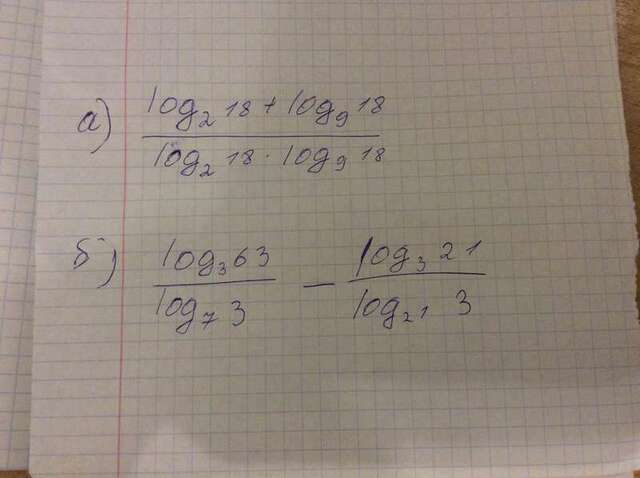 а) log₂ 18 + log₉ 18
log₂ 18 · log₉ 18
б) log₃ 63 − log₃ 21
log₇ 3 log₂₁ 3